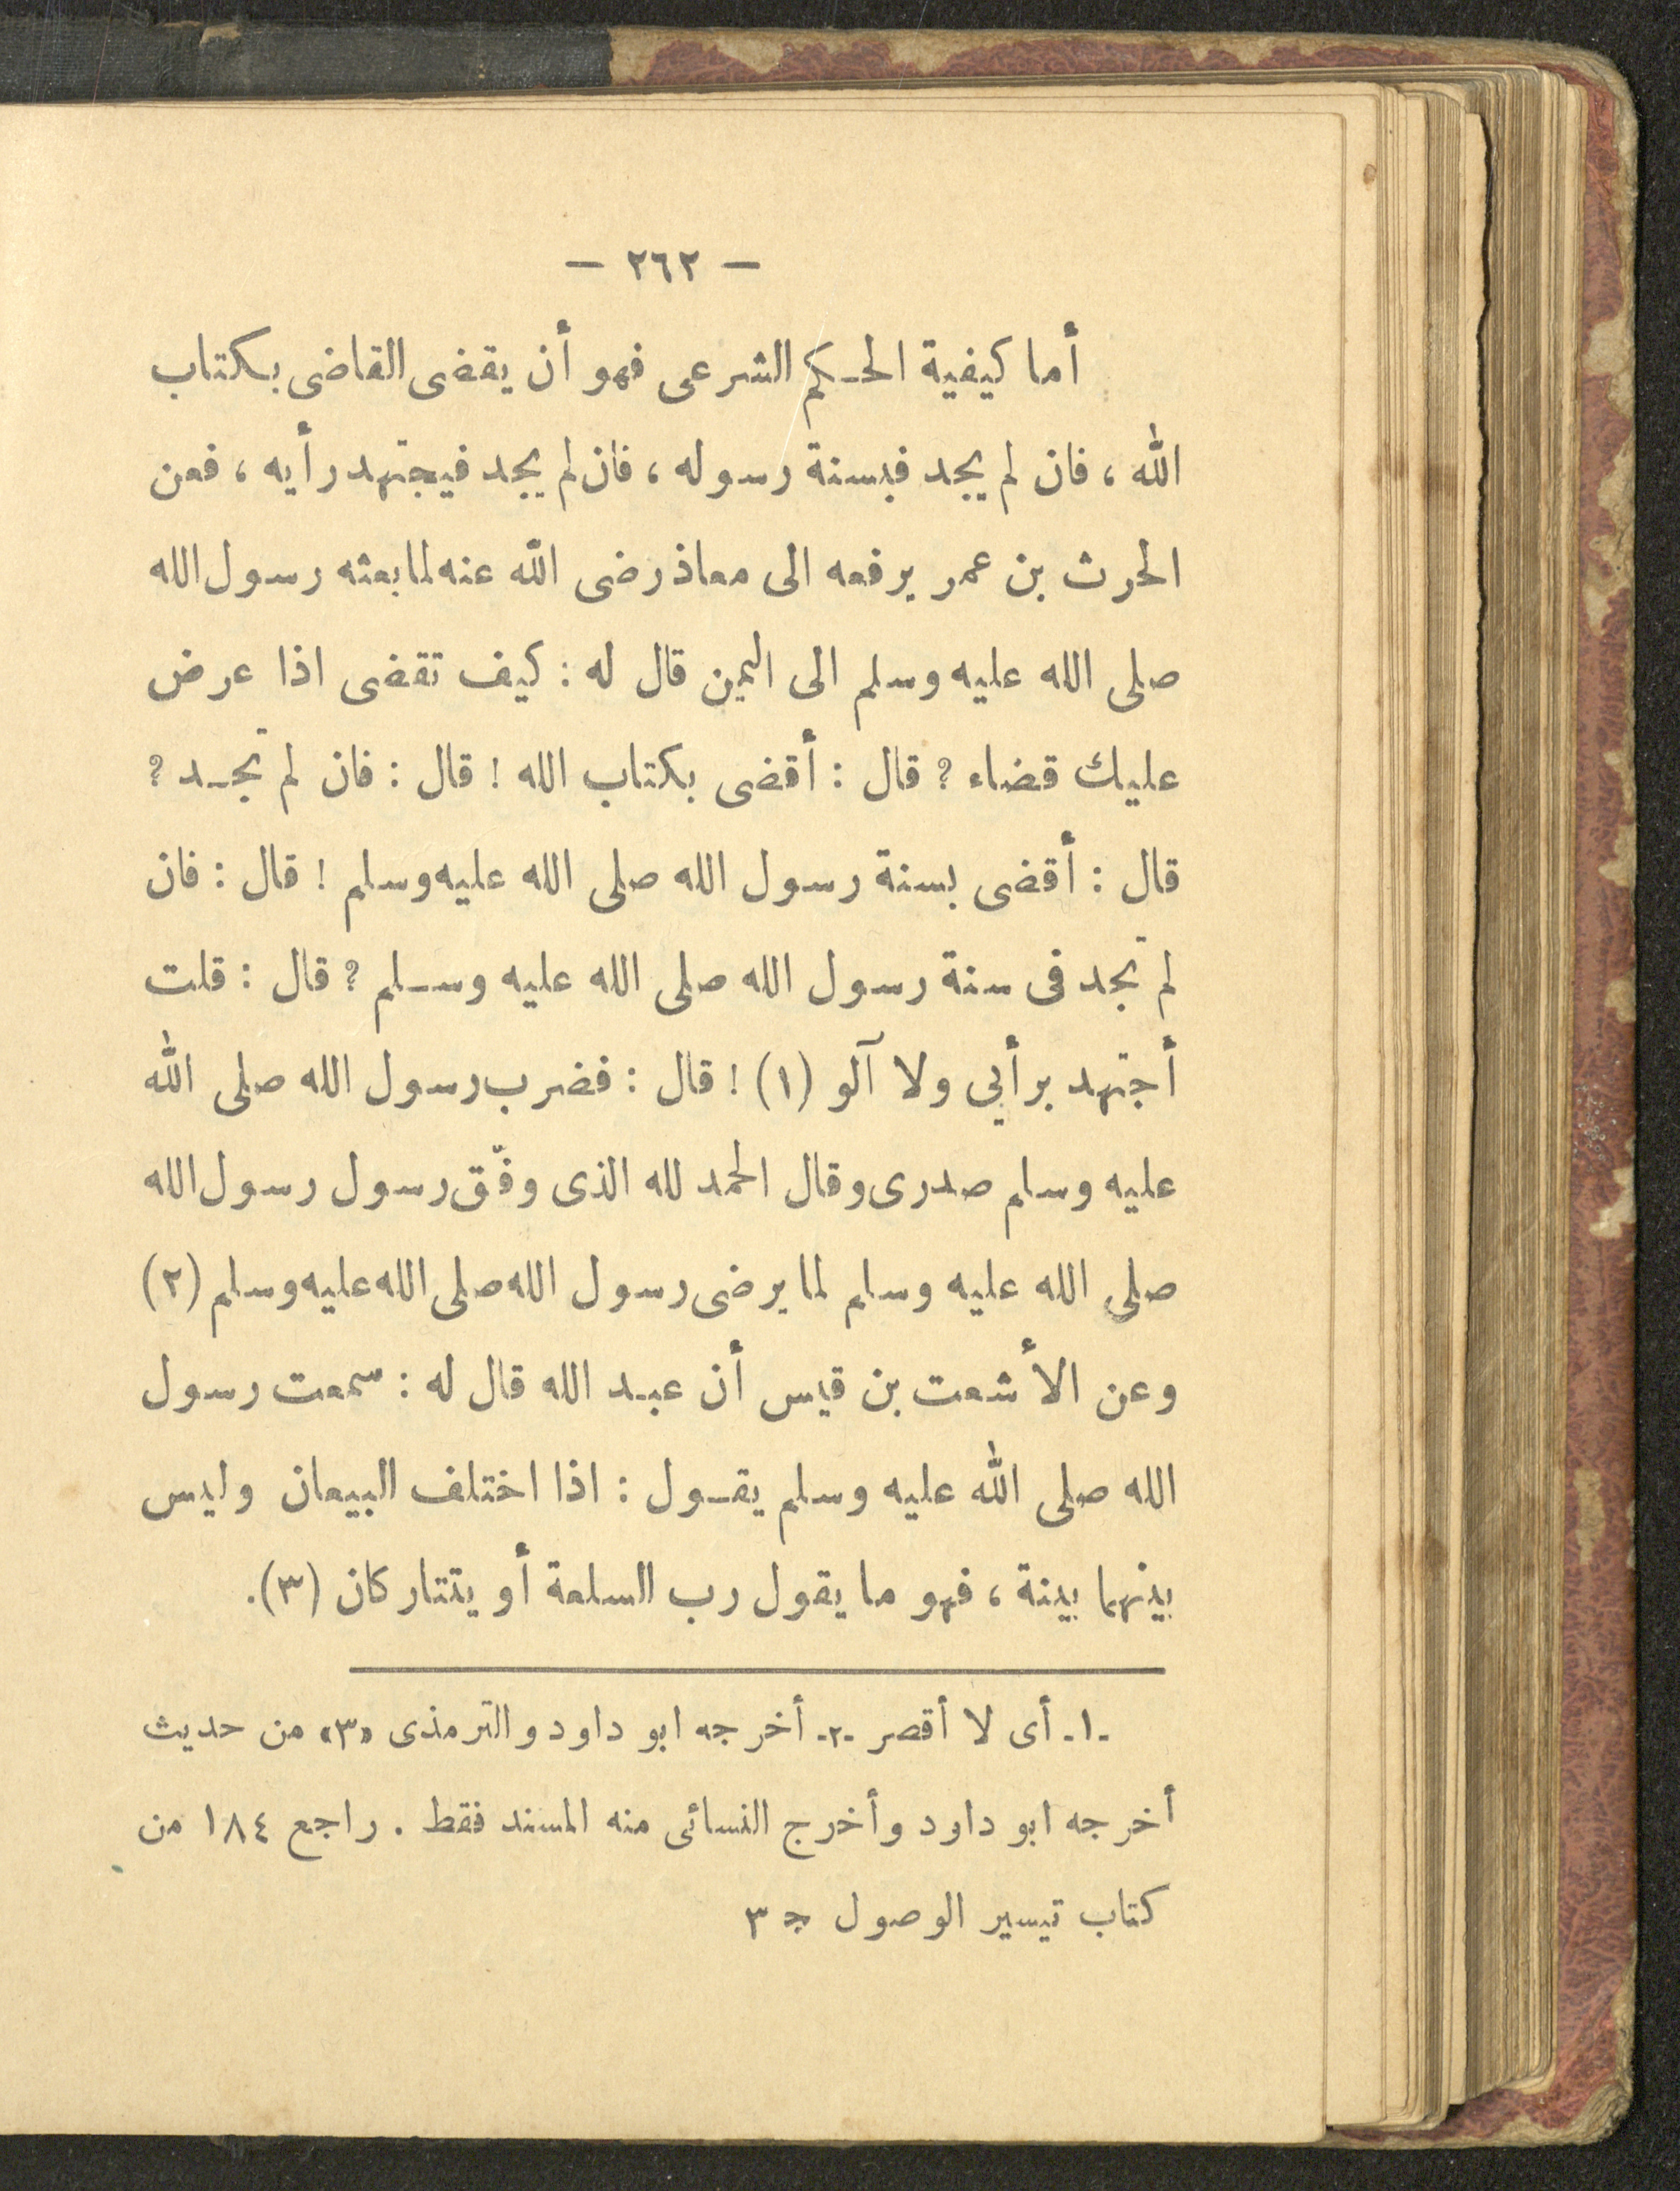 — ٢٦٢ —
أما كيفية الحكم الشرعى فهو أن يقضى القاضى بكتاب
الله ، فان لم يجد فبسنة رسوله ، فان لم يجد فيجتهد رأيه ، فعن
الحرث بن عمر يرفعه الى معاذ رضى الله عنه لما بعثه رسول الله
صلى الله عليه وسلم الى اليمن قال له : كيف تقضى اذا عرض
عليك قضاء ؟ قال : أقضى بكتاب الله ! قال : فان لم تجد ؟
قال : أقضى بسنة رسول الله صلى الله عليه وسلم ! قال : فان
لم تجد فى سنة رسول الله صلى الله عليه وسلم ؟ قال : قلت
أجتهد برأيي ولا آلو (١) ! قال : فضرب رسول الله صلى الله
عليه وسلم صدرى وقال الحمد لله الذى وفّق رسول رسول الله
صلى الله عليه وسلم لما يرضى رسول الله صلى الله عليه وسلم (٢)
وعن الأشعت بن قيس أن عبد الله قال له : سمعت رسول
الله صلى الله عليه وسلم يقول : اذا اختلف البيعان وليس
بينهما بينة ، فهو ما يقول رب السلعة أو يتتاركان (٣).
-١- أى لا أقصر -٢- أخرجه ابو داود والترمذى «٣» من حديث
أخرجه ابو داود وأخرج النسائى منه المسند فقط . راجع ١٨٤ من
كتاب تيسير الوصول ج ٣